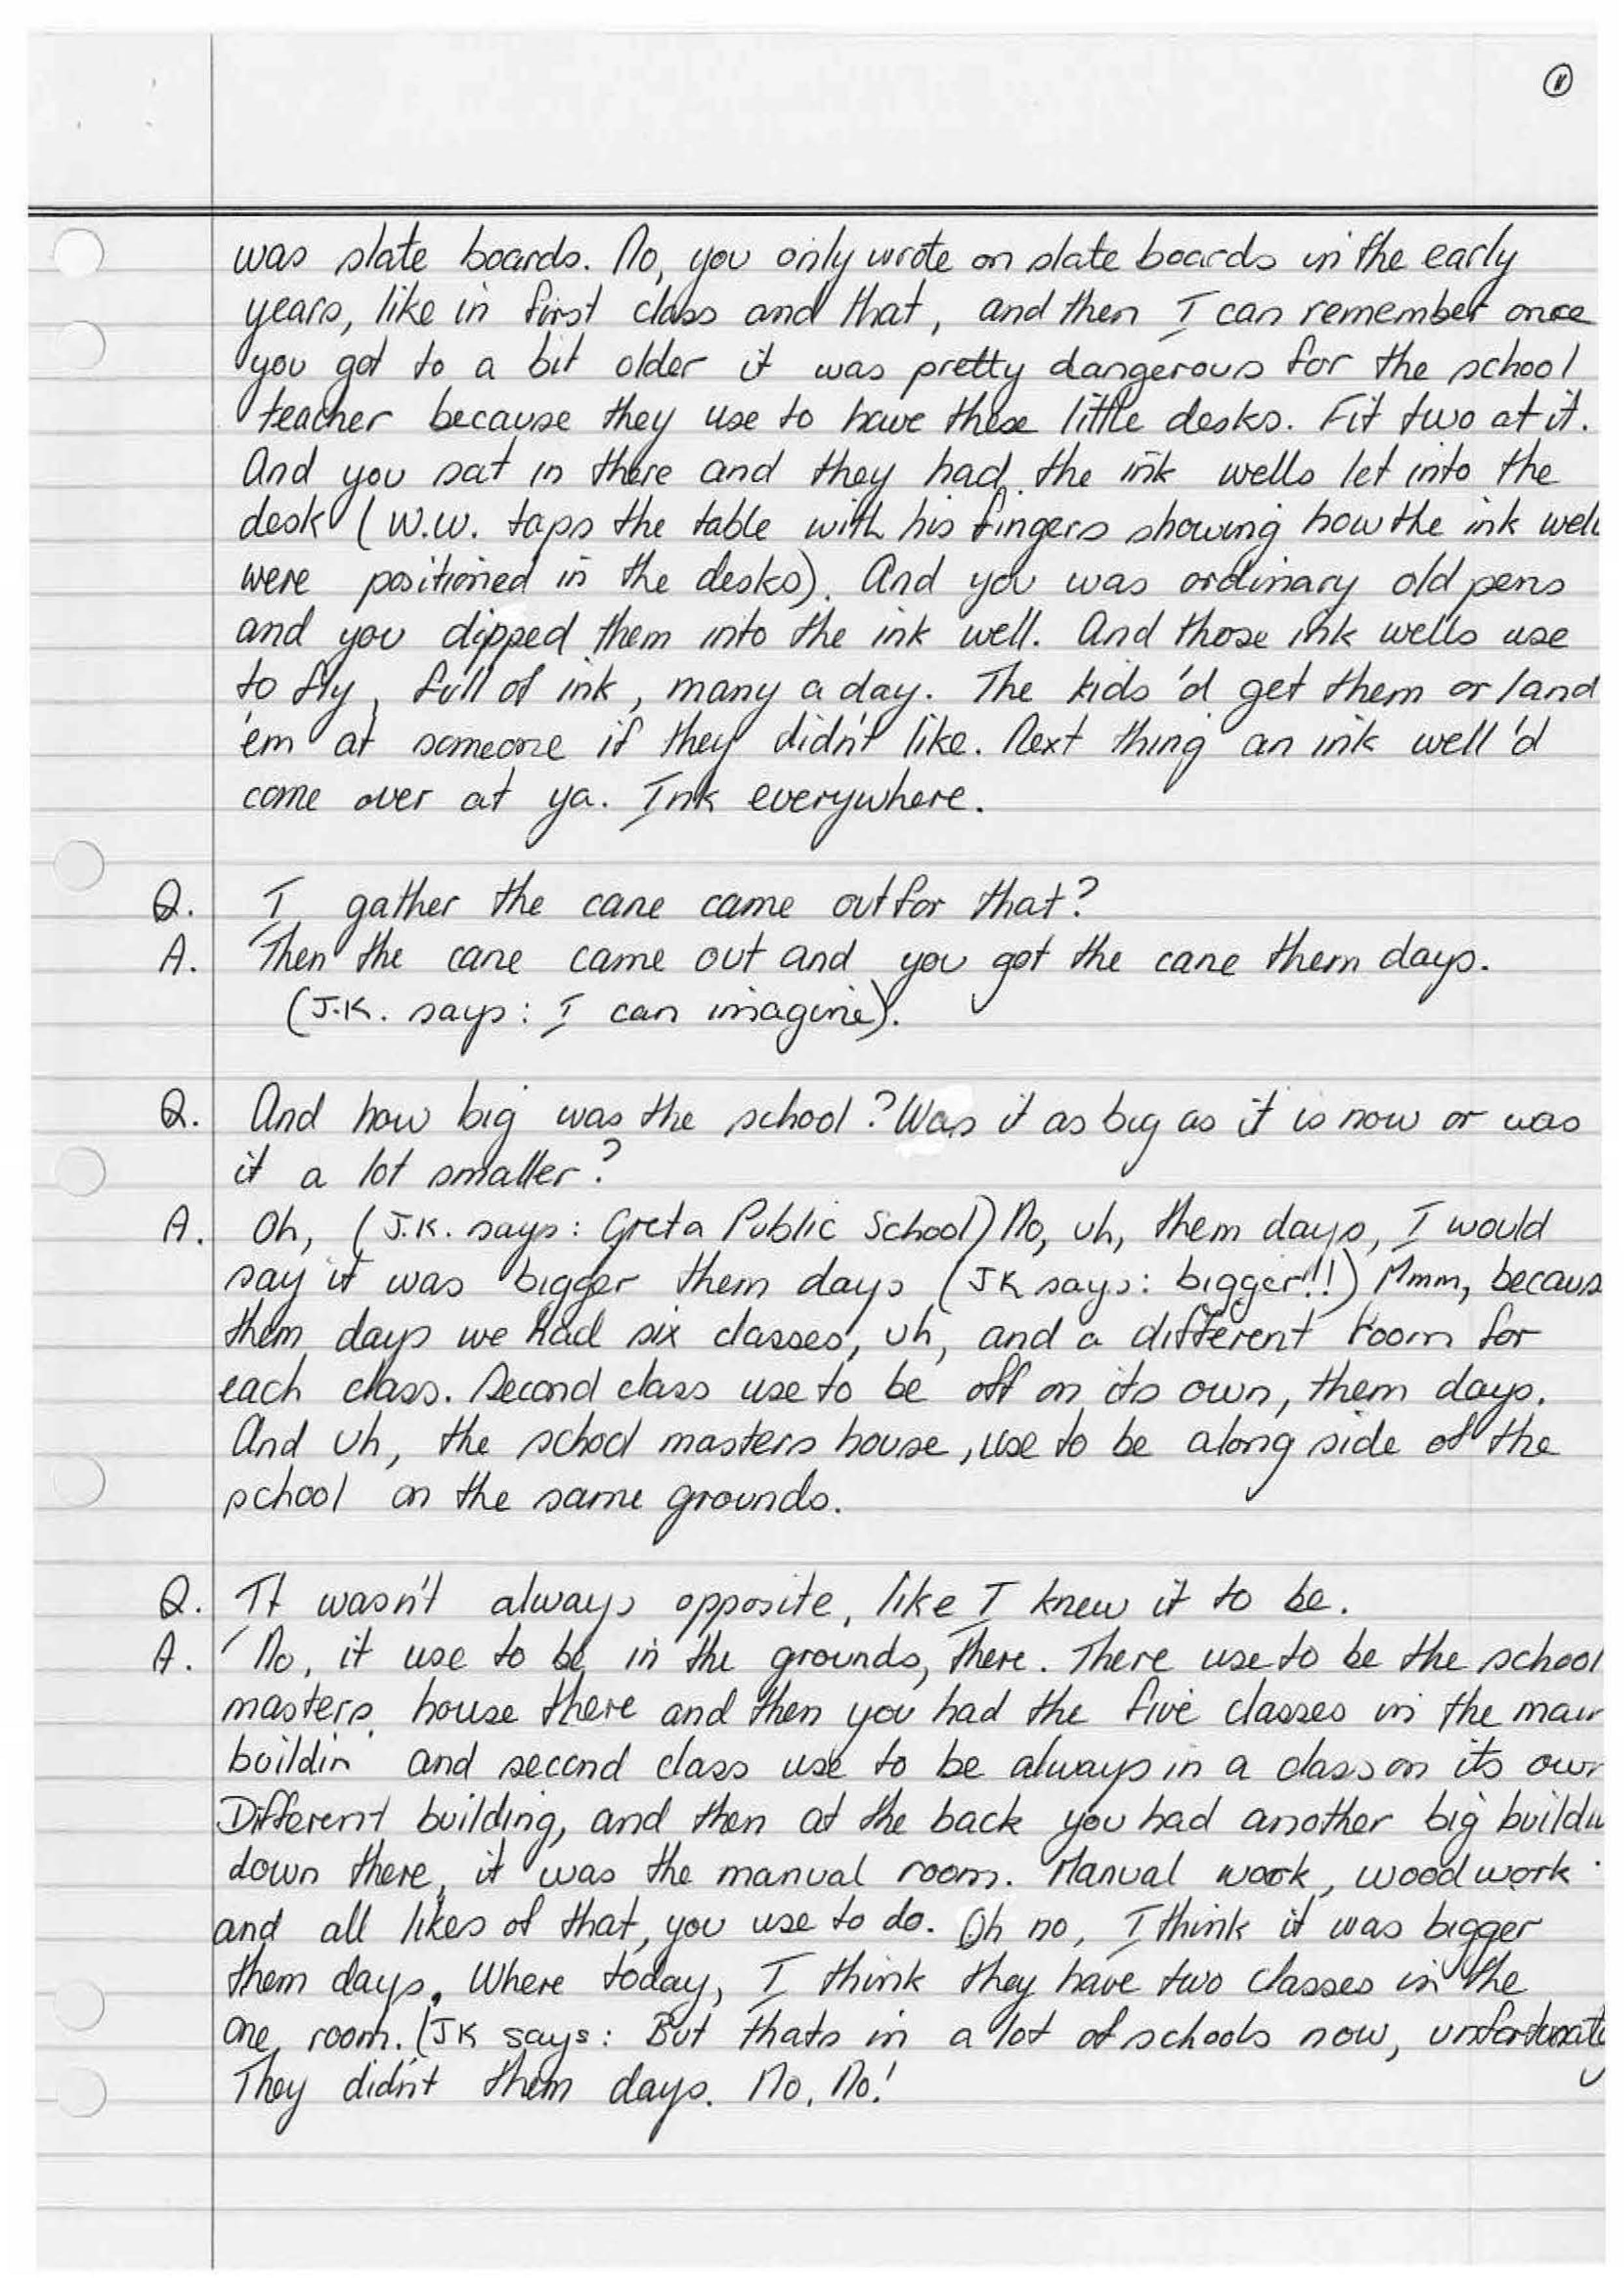 11
was slate boards. No, you only wrote on slate boards in the early
years, like in first class and that, and then I can remember once
you got to a bit older it was pretty dangerous for the school
teacher because they use to have these little desks. Fit two at it.
And you sat in there and they had the ink wells let into the
desk (W.W. taps the table with his fingers showing how the ink well
were positioned in the desks). And you was ordinary old pens
and you dipped them into the ink well. And those ink wells use
to fly, full of ink, many a day. The kids 'd get them or land
'em at someone if they didn't like. Next thing an ink well 'd
come over at ya. Ink everywhere.
Q. I gather the cane came out for that?
A. Then the cane came out and you got the cane them days.
(J.K. says: I can imagine).
Q. And how big was the school? Was it as big as it is now or was
it a lot smaller?
A. Oh, (J.K. says: Greta Public School) No, uh, them days, I would
say it was bigger them days (JK says: bigger!!) Mmm, becaus
them days we had six classes, uh, and a different room for
each class. Second class use to be off on its own, them days.
And uh, the school masters house, use to be along side of the
school on the same grounds.
Q. It wasn't always opposite, like I knew it to be.
A. No, it use to be in the grounds, there. There use to be the school
masters house there and then you had the five classes in the main
buildin' and second class use to be always in a class on its own
Different building, and then at the back you had another big buildin
down there, it was the manual room. Manual work, wood work
and all likes of that, you use to do. Oh no, I think it was bigger
them days. Where today, I think they have two classes in the
one room. (JK says: But thats in a lot of schools now, unfortunate
They didn't them days. No, No!